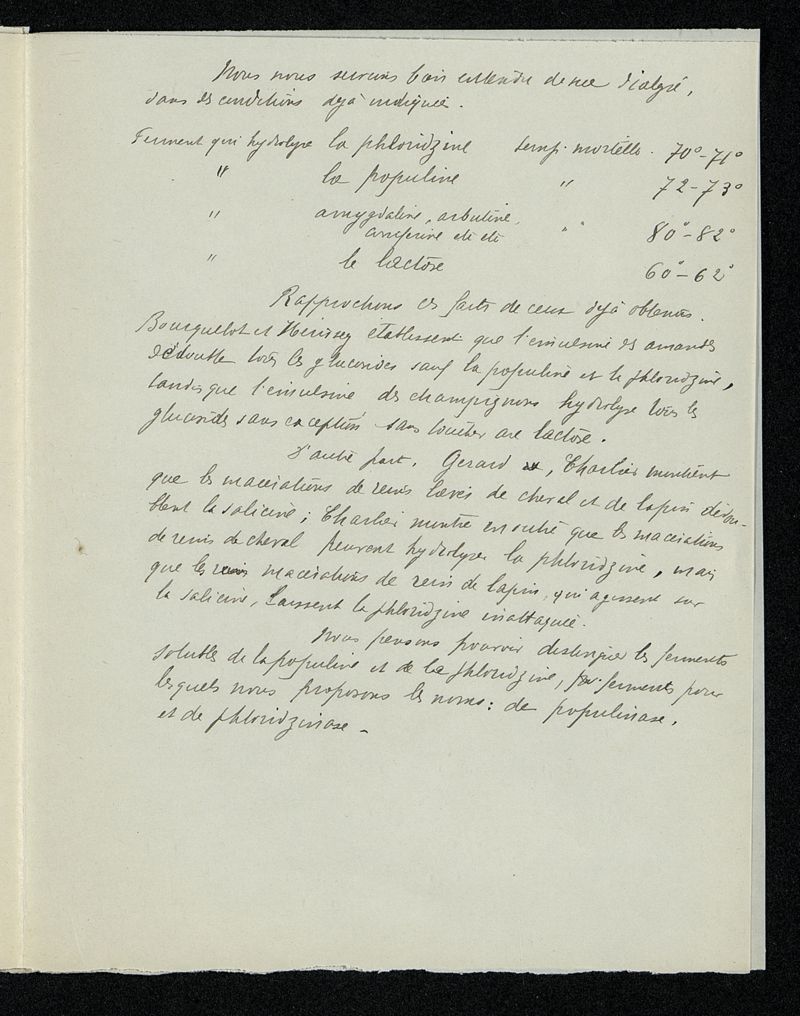 Nous nous servons bien entendu de suc dialysé,
dans les conditions déjà indiquées.
Ferment qui hydrolyse la phloridzine temp. mortelle. 70°-71°
" la populine " 72-73°
" amygdaline, arbutine,
coniférine etc etc " 80°-82°
" le lactose 60°-62°
Rapprochons ces faits de ceux déjà obtenus.
Bourquelot et Hérissey établissent que l'émulsine des amandes
dédouble tous les glucosides sauf la populine et la phloridzine,
tandis que l'émulsine des champignons hydrolyse tous les
glucosides sans exception sans toucher au lactose.
D'autre part, Gérard, Charlier montrent
que les macérations de reins lavés de cheval et de lapin dédou-
blent la salicine; Charlier montre en outre que les macérations
de reins de cheval peuvent hydrolyser la phloridzine, mais
que les macérations de reins de lapin, qui agissent sur
la salicine, laissent la phloridzine inattaquée.
Nous pensons pouvoir distinguer les ferments
solubles de la populine et de la phloridzine, ferments pour
lesquels nous proposons les noms: de populinase,
et de phloridzinase -